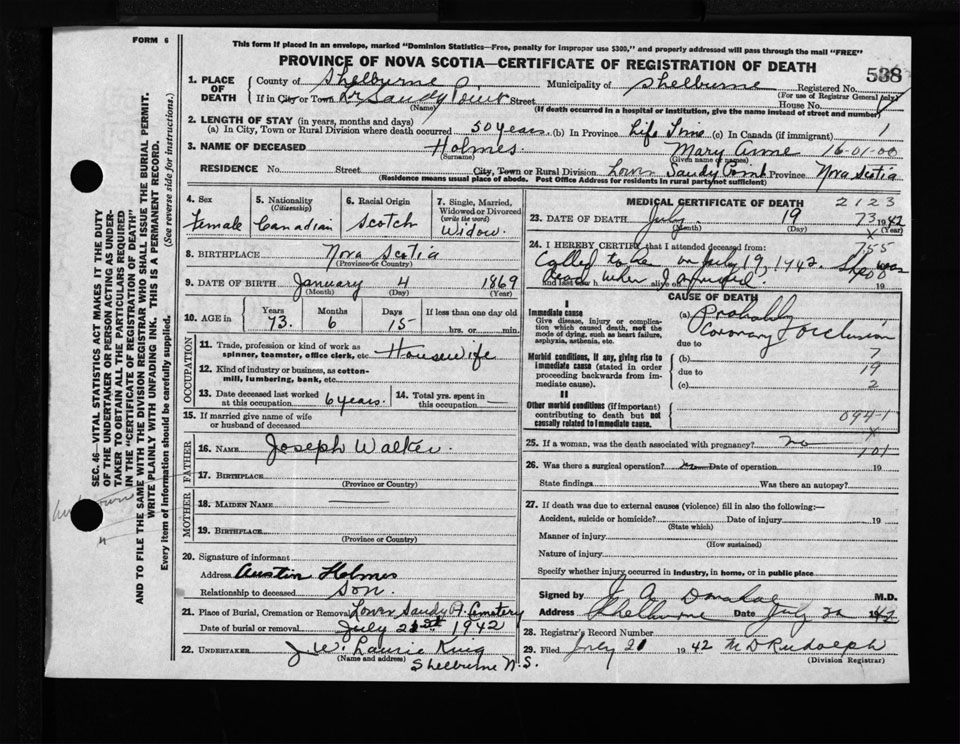 FORM 6
This form if placed in an envelope, marked "Dominion Statistics—Free, penalty for improper use $300," and properly addressed will pass through the mail "FREE"
PROVINCE OF NOVA SCOTIA—CERTIFICATE OF REGISTRATION OF DEATH
538
1. PLACE OF DEATH
County of Shelburne Municipality of Shelburne Registered No.
(For use of Registrar General only)
If in City or Town Lr Sandy Point Street House No.
(Name) (If death occurred in a hospital or institution, give the name instead of street and number)
2. LENGTH OF STAY (in years, months and days)
(a) In City, Town or Rural Division where death occurred 50 years (b) In Province Life Time (c) In Canada (if immigrant) 1
3. NAME OF DECEASED Holmes Mary Anne 16-01-00
(Surname) (Given name or names)
RESIDENCE No. Street City, Town or Rural Division Lower Sandy Province Nova Scotia
(Residence means usual place of abode. Post Office Address for residents in rural parts not sufficient)
4. Sex Female
5. Nationality (Citizenship) Canadian
6. Racial Origin Scotch
7. Single, Married, Widowed or Divorced (write the word) Widow.
8. BIRTHPLACE Nova Scotia
(Province or Country)
9. DATE OF BIRTH January 4 1869
(Month) (Day) (Year)
10. AGE in Years 73. Months 6 Days 15 If less than one day old hrs. or min.
OCCUPATION
11. Trade, profession or kind of work as spinner, teamster, office clerk, etc Housewife
12. Kind of industry or business, as cotton-mill, lumbering, bank, etc.
13. Date deceased last worked at this occupation 6 years.
14. Total yrs. spent in this occupation —
15. If married give name of wife or husband of deceased
FATHER
16. NAME Joseph Walter
17. BIRTHPLACE
(Province or Country)
MOTHER
18. MAIDEN NAME
19. BIRTHPLACE
(Province or Country)
20. Signature of informant
Address Austin Holmes
Relationship to deceased Son.
21. Place of Burial, Cremation or Removal Lower Sandy Pt. Cemetery
Date of burial or removal July 21st 1942
22. UNDERTAKER J. W. Laurie King
(Name and address) Shelburne N.S.
MEDICAL CERTIFICATE OF DEATH 2123
23. DATE OF DEATH July 19 1942
73
(Month) (Day) (Year)
24. I HEREBY CERTIFY that I attended deceased from: 755
Called to her on July 19, 1942. She was
dead when I arrived.
CAUSE OF DEATH
I
Immediate cause
Give disease, injury or complication which caused death, not the mode of dying, such as heart failure, asphyxia, asthenia, etc.
(a) Probably
Coronary Occlusion
due to
Morbid conditions, if any, giving rise to immediate cause (stated in order proceeding backwards from immediate cause).
(b) 7
due to 19
(c) 2
II
Other morbid conditions (if important) contributing to death but not causally related to immediate cause.
094-1
25. If a woman, was the death associated with pregnancy? no
101
26. Was there a surgical operation? no Date of operation 19
State findings Was there an autopsy?
27. If death was due to external causes (violence) fill in also the following:—
Accident, suicide or homicide? Date of injury 19
(State which)
Manner of injury
(How sustained)
Nature of injury
Specify whether injury occurred in industry, in home, or in public place
Signed by M.D.
Address Shelburne Date July 20 1942
28. Registrar's Record Number
29. Filed July 21 1942 M D Rudolph
(Division Registrar)
SEC. 46—VITAL STATISTICS ACT MAKES IT THE DUTY
OF THE UNDERTAKER OR PERSON ACTING AS UNDER-
TAKER TO OBTAIN ALL THE PARTICULARS REQUIRED
IN THE "CERTIFICATE OF REGISTRATION OF DEATH"
AND TO FILE THE SAME WITH THE DIVISION REGISTRAR WHO SHALL ISSUE THE BURIAL PERMIT.
WRITE PLAINLY WITH UNFADING INK. THIS IS A PERMANENT RECORD.
Every item of information should be carefully supplied. (See reverse side for instructions.)